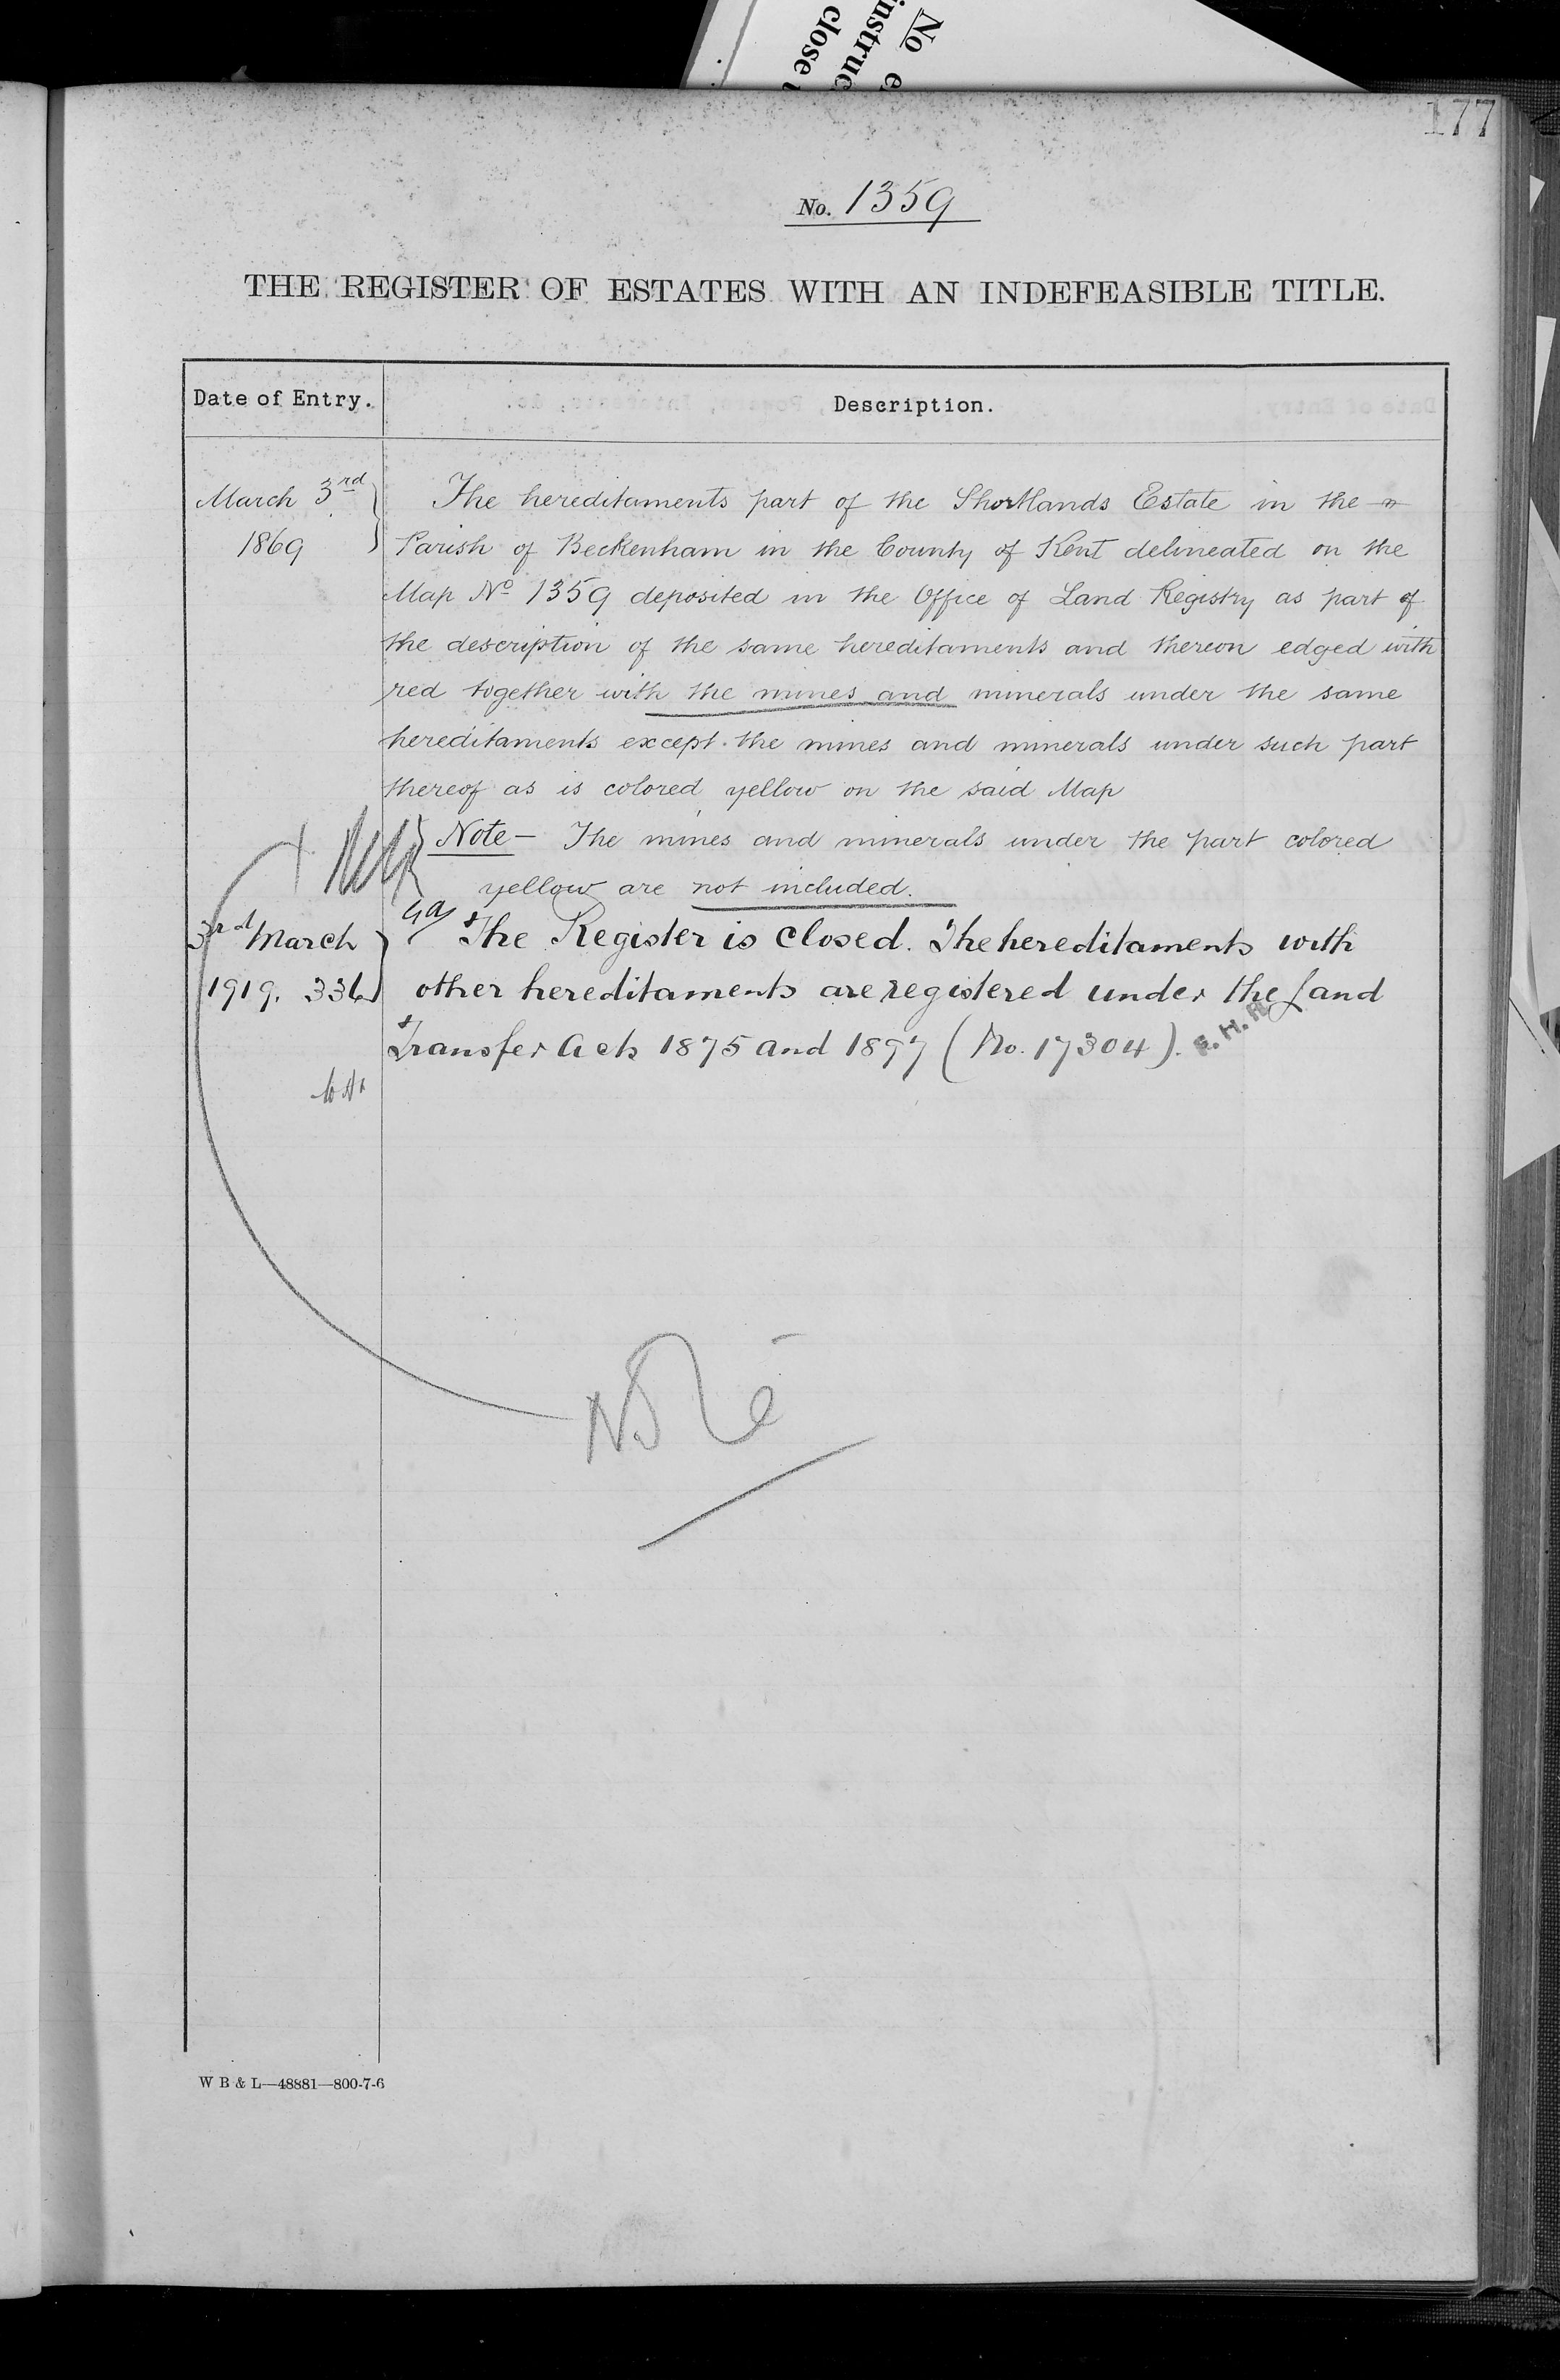 No
instruc
close
177
No. 1359
THE REGISTER OF ESTATES WITH AN INDEFEASIBLE TITLE.
Date of Entry.
Description.
March 3rd
1869
The hereditaments part of the Shortlands Estate in the
Parish of Beckenham in the County of Kent delineated on the
Map No 1359 deposited in the Office of Land Registry as part of
the description of the same hereditaments and thereon edged with
red together with the mines and minerals under the same
hereditaments except the mines and minerals under such part
thereof as is colored yellow on the said Map
Note — The mines and minerals under the part colored
yellow are not included.
3rd March
1919. 336
The Register is closed. The hereditaments with
other hereditaments are registered under the Land
Transfer Acts 1875 and 1897 (No. 17304).
Note
W B & L—48881—800-7-6